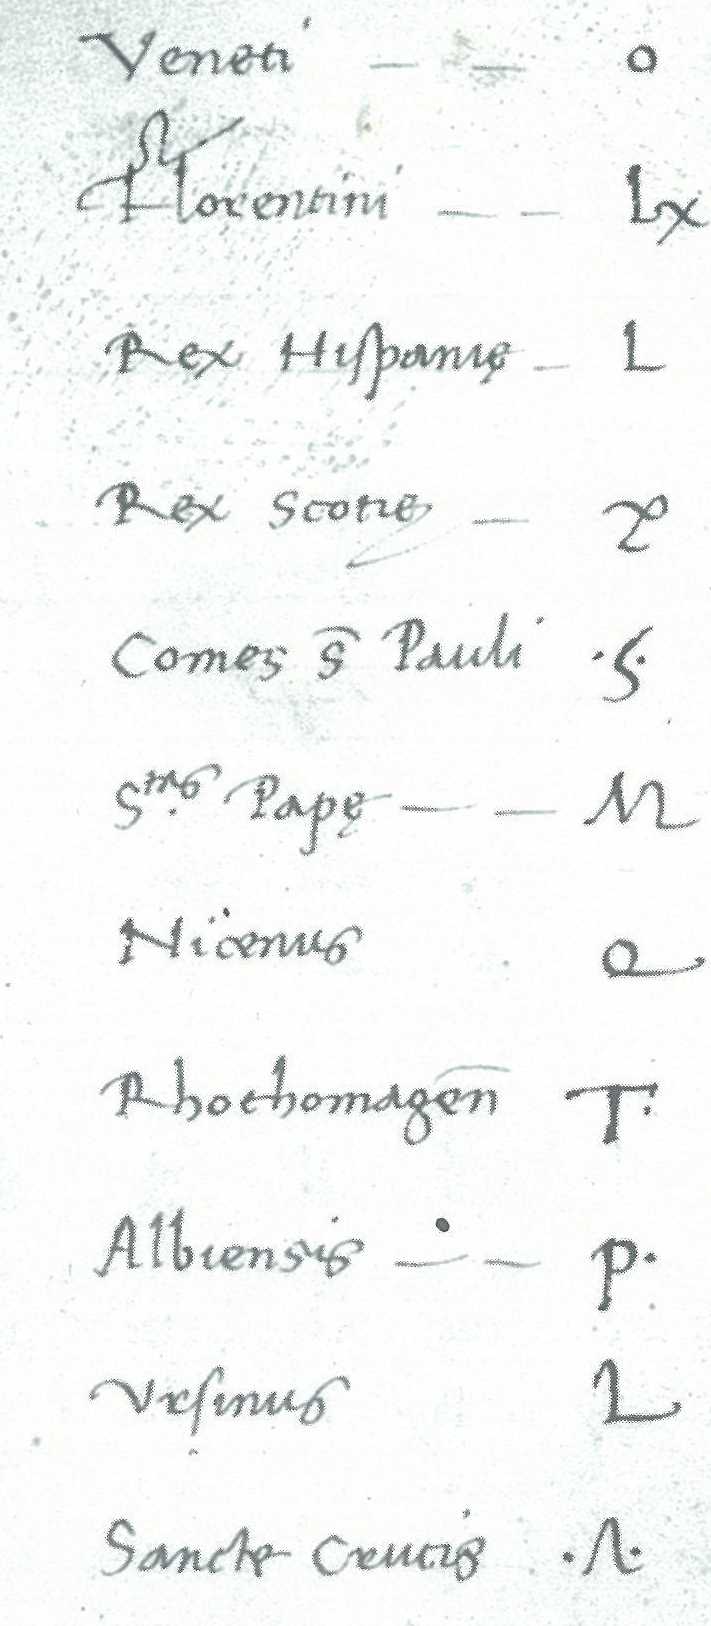 Veneti — — o
Florentini — — Lx
Rex Hispanię — L
Rex Scotię —
Comes S̄ Pauli
Smus Papę — —
Nicenus
Rhothomagen̄ T.
Albiensis — — p.
Vrsinus
Sanctę Crucis